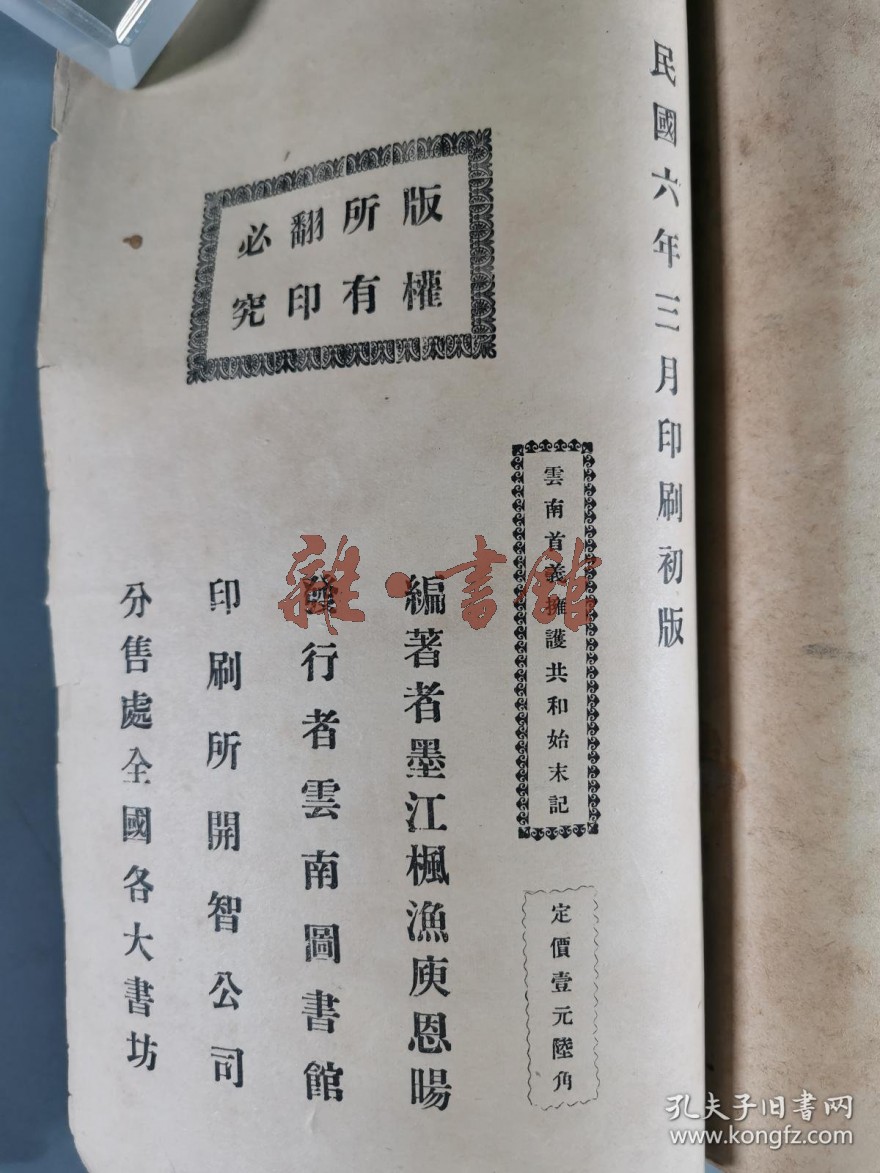 民國六年三月印刷初版
雲南首義擁護共和始末記
定價壹元陸角
版權
所有
翻印
必究
編著者墨江楓漁庾恩暘
發行者雲南圖書館
印刷所開智公司
分售處全國各大書坊
雜·書館
孔夫子旧书网
www.kongfz.com